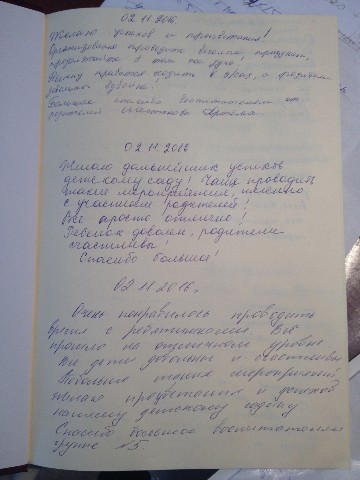 02.11.2016
Желаю успехов и процветания!
Организация проводить веселья, праздники,
продолжайте в том же духе!
ходить в
вдвойне!
Большое спасибо воспитателям от
родителей
02.11.2016
Желаю дальнейших успехов
детскому саду! Чаще проводить
такие мероприятия, именно
с участием родителей!
Всё просто отлично!
Ребёнок доволен, родители
счастливы!
Спасибо большое!
02.11.2016г
Очень понравилось проводить
время с ребятишками. Всё
прошло на отличном уровне
Все дети довольны и счастливы
Побольше таких мероприятий
Желаю процветания и успехов
нашему детскому садику
Спасибо большое воспитателям
группе №5.